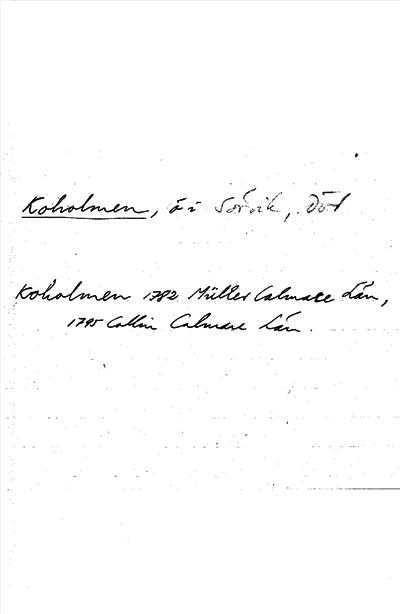 Koholmen, ö i
Koholmen 1782 Müller Calmare Län,
1795 Collin Calmare Län.